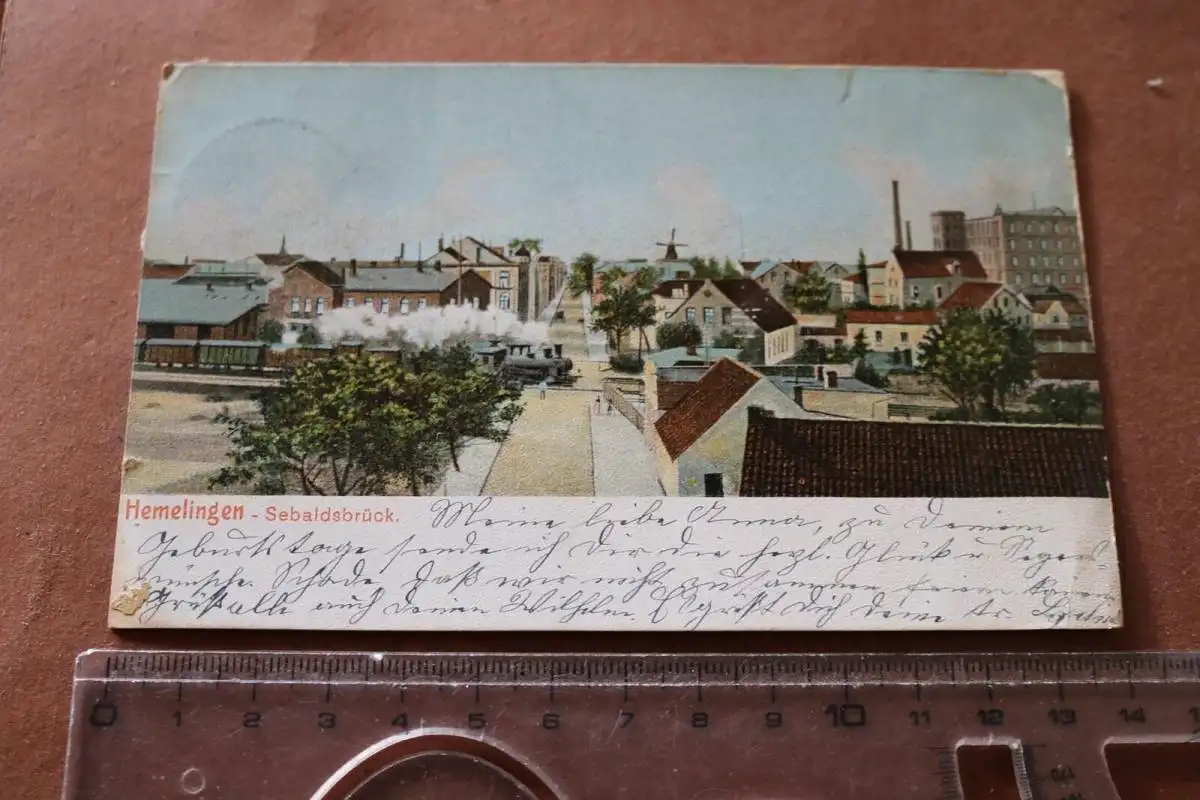 Hemelingen - Sebaldsbrück.
Meine liebe Anna, zu Deinem
Geburtstage sende ich Dir die hrzl. Glück u Segens
wünsche. Schade, daß wir nicht zusammen feiern können
Grüß alle auch deinen Wilhelm. Es grüßt Dich Deine
0 1 2 3 4 5 6 7 8 9 10 11 12 13 14 15